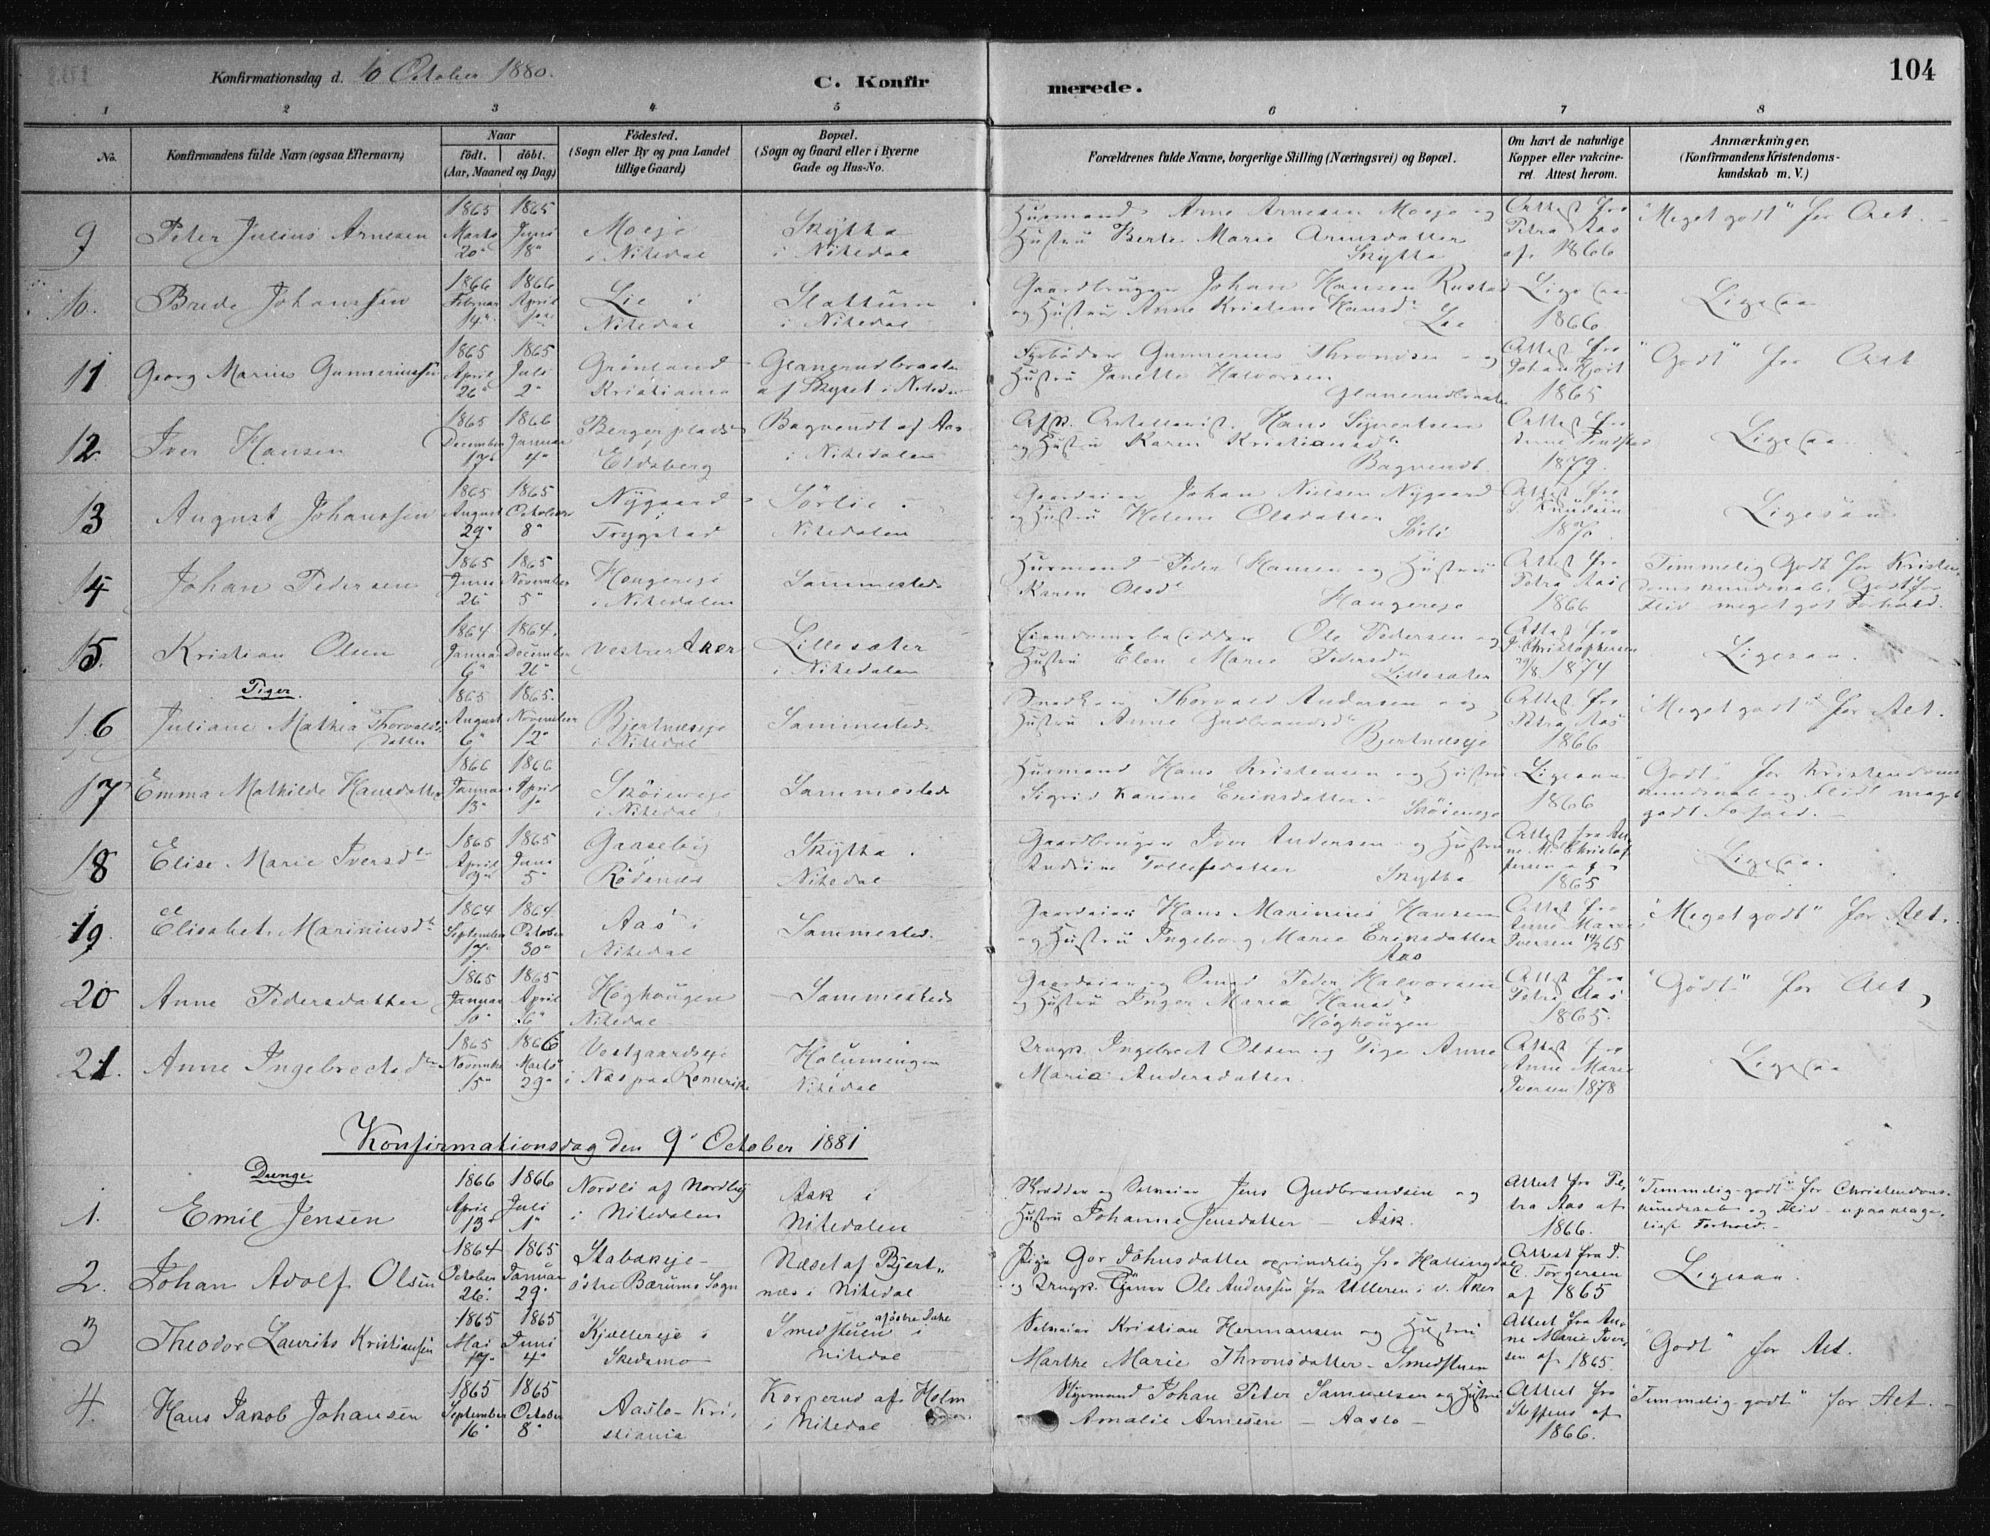 Konfirmationsdag d. 10 October 1880.
C. Konfirmerede.
104
1 2 3 4 5 6 7 8
No.
Konfirmandens fulde Navn (ogsaa Efternavn)
Naar
födt. döbt.
(Aar, Maaned og Dag)
Födested.
(Sogn eller By og paa Landet
tillige Gaard)
Bopæl.
(Sogn og Gaard eller i Byerne
Gade og Hus-No.
Forældrenes fulde Navne, borgerlige Stilling (Næringsvei) og Bopæl.
Om havt de naturlige
Kopper eller vakcine-
ret. Attest herom.
Anmærkninger.
(Konfirmandens Kristendoms-
kundskab m. V.)
9 Peter Julius Arnesen
1865 Marts 20
1865 Juni 18
Moeje
i Nitedal
Skytta
i Nitedal
Husmand Arne Arnesen Moeje og
Hustru Berte Marie Arnesdatter
Skytta
Attest fra
Petra Aas
af 1866
"Meget godt" for Alt.
10. Brede Johanssen
1866 Februar 14
1866 April
Lie i
Nitedal
Slattum
i Nitedal
Gaardbruger Johan Hansen Rustad
og Hustru Anne Kristine Hansd.
Lie
Ligesaa
1866
Ligesaa
11 Georg Marius Gunneriussen
1865 April 26
1865 Juli 2
Grönland
Kristiania
Glanerudbraaten
af Skyset i Nitedal
Fyrböder Gunnerius Throndsen og
Hustru Janette Halvorsen
Glanerudbraaten
Attest fra
Johan Hjort
1865
"Godt" for Alt
12. Iver Hansen
1865 December 17
1866 Januar 4
Berger plads
Eidsberg
Bagvendt af Aas
i Nitedalen
Hans Sigvartsen
og Hustru Karen Kristiansd.
Bagvendt
Attest fra
1879.
Ligesaa
13 August Johanssen
1865 August 29
1865 October 8
Nygaard
Trygstad
Sörlie
Nitedalen
Gaardeier Johan Nielsen Nygaard
og Hustru Helene Olsdatter
Sörli
Attest fra
Knudsen
1870.
Ligesaa
14 Johan Pedersen
1865 Juni 26
1865 November 5
Haugereje
i Nitedalen
Sammesteds
Husmand Peder Hansen og Hustru
Karen Olsd
Haugereje
Attest fra
Petra Aas
1866
Temmelig Godt for Kristen-
domskundskab, Godt for
Flid meget got Forhold.
15. Kristian Olsen
1864 Januar 6
1864. December 26
Vestrer Aker
Lillesæter
i Nitedalen
Eiendomsbesidder Ole Pedersen og
Hustru Elen Marie Pedersd.
Lillesæter
Attest fra
J. Christophersen
1874
Ligesaa.
Piger.
16 Juliane Mathea Thorvalds-
datter
1865 August 6
1865. November 12
Bjertnæseje
i Nitedal
Sammesteds
Snedker Thorvald Andersen og
Hustru Anne Gudbrandsd.
Bjertnæseje
Attest fra
Petra Aas
1866
"Meget godt" for Alt.
17 Emma Mathilde Hansdatter
1866 Januar 13
1866 April 1
Sköieneje
i Nitedal
Sammesteds
Husmand Hans Kristensen og Hustru
Sigrid Karine Eriksdatter
Sköieneje
Ligesaa
1866
"Godt" for Kristendoms-
kundskab og Flid meget
godt Forhold.
18 Elise Marie Iversd.
1865 April
1865 Juni 5
Gaaseby
Rödenæs
Skytta
Nitedal
Gaardbruger Iver Andersen og Hustru
Andrine Tollefsdatter
Skytta
Attest fra An-
ne M. Christof-
fersen
1865
Ligesaa.
19. Elisabet Mariniusd.
1864 September 17
1864. October 30
Aas i
Nitedal
Sammesteds.
Gaardeier Hans Marinius Hansen
og Hustru Ingeborg Marie Eriksdatter
Aas
Attest fra
Anne Marie
Iversen 65
"Meget godt" for Alt.
20 Anne Pedersdatter
1865 Januar 10
1865 April 16
Höghougen
Nitedal
Sammesteds
Gaardeier og Smed Peder Halvorsen
og Hustru Inger Maria Hansd.
Höghougen
Attest fra
Petra Aas
1865.
"Godt" for Alt,
21. Anne Ingebrectsd.
1865 November 15
1866 Marts 29
Vestgaardseje
i Næs paa Romerike
Holumeingen
Nitedal
Ungk. Ingebrect Olsen og Pige Anne
Maria Andersdatter.
Attest fra
Anne Marie
Iversen 1878
Ligesaa
Konfirmationsdag den 9 October 1881
Drenge
1. Emil Jensen
1866 April 13
1866 Juli 1
Nordli af Nordby
i Nitedalen
Ask i
Nitedalen
Skrædder og Selveier Jens Gudbrandsen og
Hustru Johanne Jensdatter – Ask.
Attest fra Pe-
tra Aas af
1866.
"Temmelig godt" for Christendoms-
kundskab og Flid – upaaklage-
ligt Forhold.
2. Johan Adolf Olsen
1864 October 26
1865 Januar 29
Stabækeje
östre Bærums Sogn
Næset af Bjert-
næs i Nitedal
Pige Gor Johnsdatter oprindelig fra Hallingdal
og Ungk. Tjener Ole Anderssen fra Ulleren i v. Aker
Attest fra T.
C. Torgersen
af 1865
Ligesaa.
3 Theodor Laurits Kristiansen
1865 Mai 17
1865 Juni 4
Kjellereje i
Skedsmo
Smedstuen i
Nitedal
Selveier Kristian Hermansen og Hustru
Marthe Marie Thronsdatter – Smedstuen
Attest fra An-
ne Marie Iver-
sen af 1865.
"Godt" for Alt.
4. Hans Jakob Johansen
1865 September 16
1865 October 8
Aaslo – Kri-
stiania
Korperud af Holm
i Nitedal
Styrmand Johan Peter Samuelsen og Hustru
Amalie Arnesen – Aaslo –
Attest fra
Steffens af
1866.
"Temmelig godt" for Alt. –